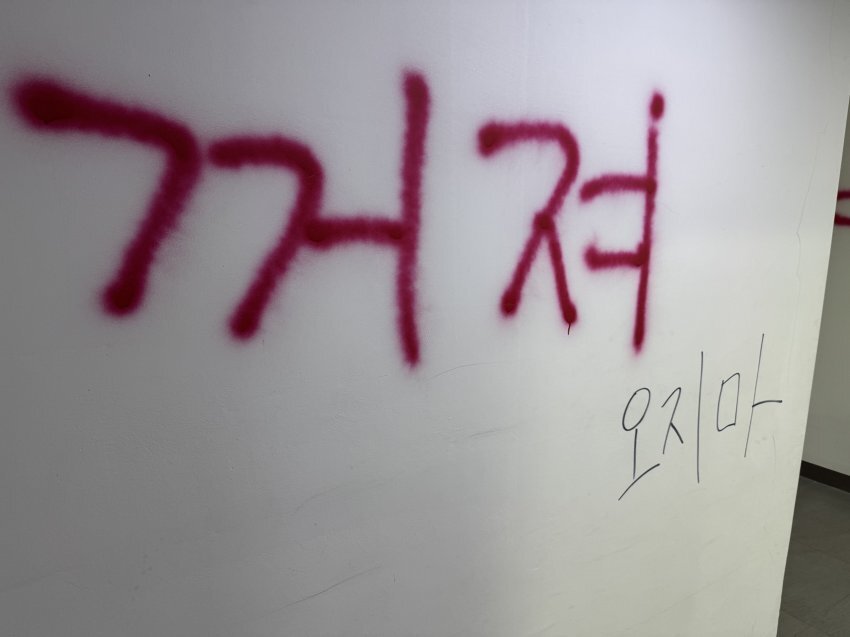 꺼져
오지마